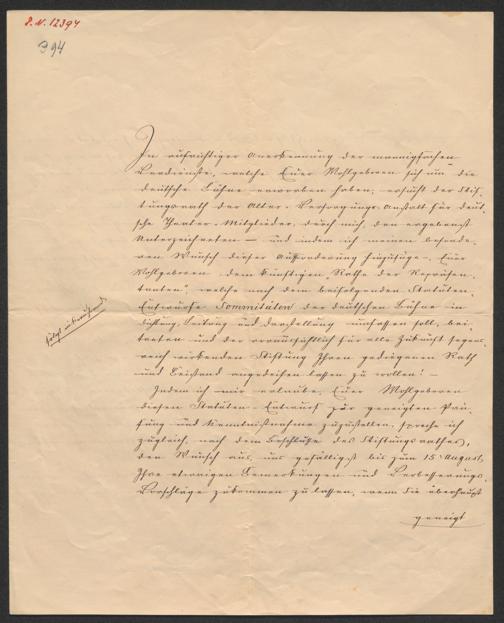 J. N. 12394
394
In aufrichtiger Anerkennung der mannigfachen
Verdienste, welche Euer Wohlgeboren sich um die
deutsche Bühne erworben haben, ersucht der Stif-
tungsrath der Alters-Versorgungs-Anstalt für deut-
sche Theater-Mitglieder, durch mich, den ergebenst
Unterzeichneten — und indem ich meinen besonde-
ren Wunsch dieser Aufforderung hinzufüge — Euer
Wohlgeboren dem künftigen Rathe der Repräsen-
tanten, welche nach dem beifolgenden Statuten-
Entwurfe Sommitäten der deutschen Bühne in
Dichtung, Leitung und Darstellung umfassen soll, bei-
treten und der voraussichtlich für alle Zukunft segens-
reich wirkenden Stiftung Ihren gediegenen Rath
und Beistand angedeihen lassen zu wollen! —
Indem ich mir erlaube, Euer Wohlgeboren
diesen Statuten-Entwurf zur geneigten Prü-
fung und Kenntnißnahme zuzustellen, spreche ich
zugleich, nach dem Beschlusse des Stiftungsrathes,
den Wunsch aus, uns gefälligst bis zum 15 August,
Ihre etwaigen Bemerkungen und Verbesserungs-
Vorschläge zukommen zu lassen, wenn Sie überhaupt
geneigt